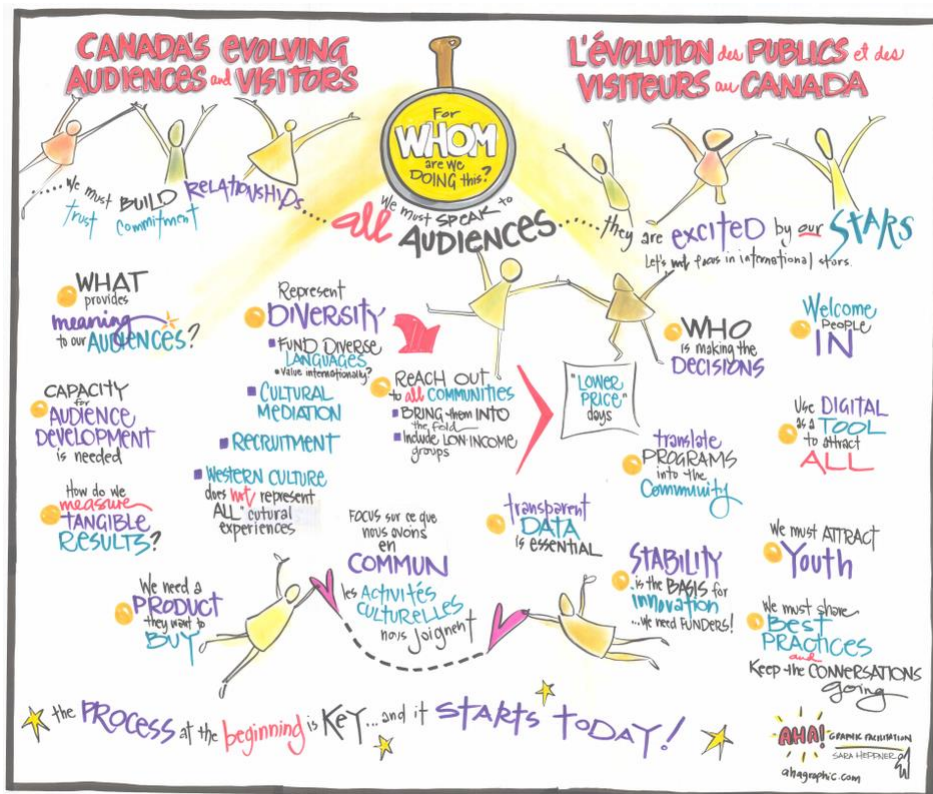 CANADA'S EVOLVING
AUDIENCES and VISITORS
L'ÉVOLUTION des PUBLICS et des
VISITEURS au CANADA
For
WHOM
are we
DOING this?
....we must BUILD RELATIONSHIPS....
trust commitment
we must SPEAK to
all AUDIENCES.....
they are EXCITED by our STARS
Let's not focus in international stars.
WHAT
provides
meaning
to our AUDIENCES?
CAPACITY
for
AUDIENCE
DEVELOPMENT
is needed
How do we
measure
TANGIBLE
RESULTS?
We need a
PRODUCT
they want to
BUY
Represent
DIVERSITY
FUND DIVERSE
LANGUAGES
• Value internationally?
CULTURAL
MEDIATION
RECRUITMENT
WESTERN CULTURE
does not represent
"ALL" cutural
experiences
REACH OUT
to all COMMUNITIES
BRING them INTO
the field
Include LOW INCOME
groups
"LOWER
PRICE"
days
FOCUS sur ce que
nous avons
en
COMMUN
les ACTIVITÉS
CULTURELLES
nous joignent
transparent
DATA
is essential
WHO
is making the
DECISIONS
translate
PROGRAMS
into the
Community
STABILITY
..is the BASIS for
innovation
...we need FUNDERS!
Welcome
PEOPLE
IN
Use DIGITAL
as a TOOL
to attract
ALL
We must ATTRACT
Youth
We must share
Best
PRACTICES
and
Keep the CONVERSATIONS
going
the PROCESS at the beginning is KEY...and it STARTS TODAY!
AHA! GRAPHIC FACILITATION
SARA HEPPNER
ahagraphic.com